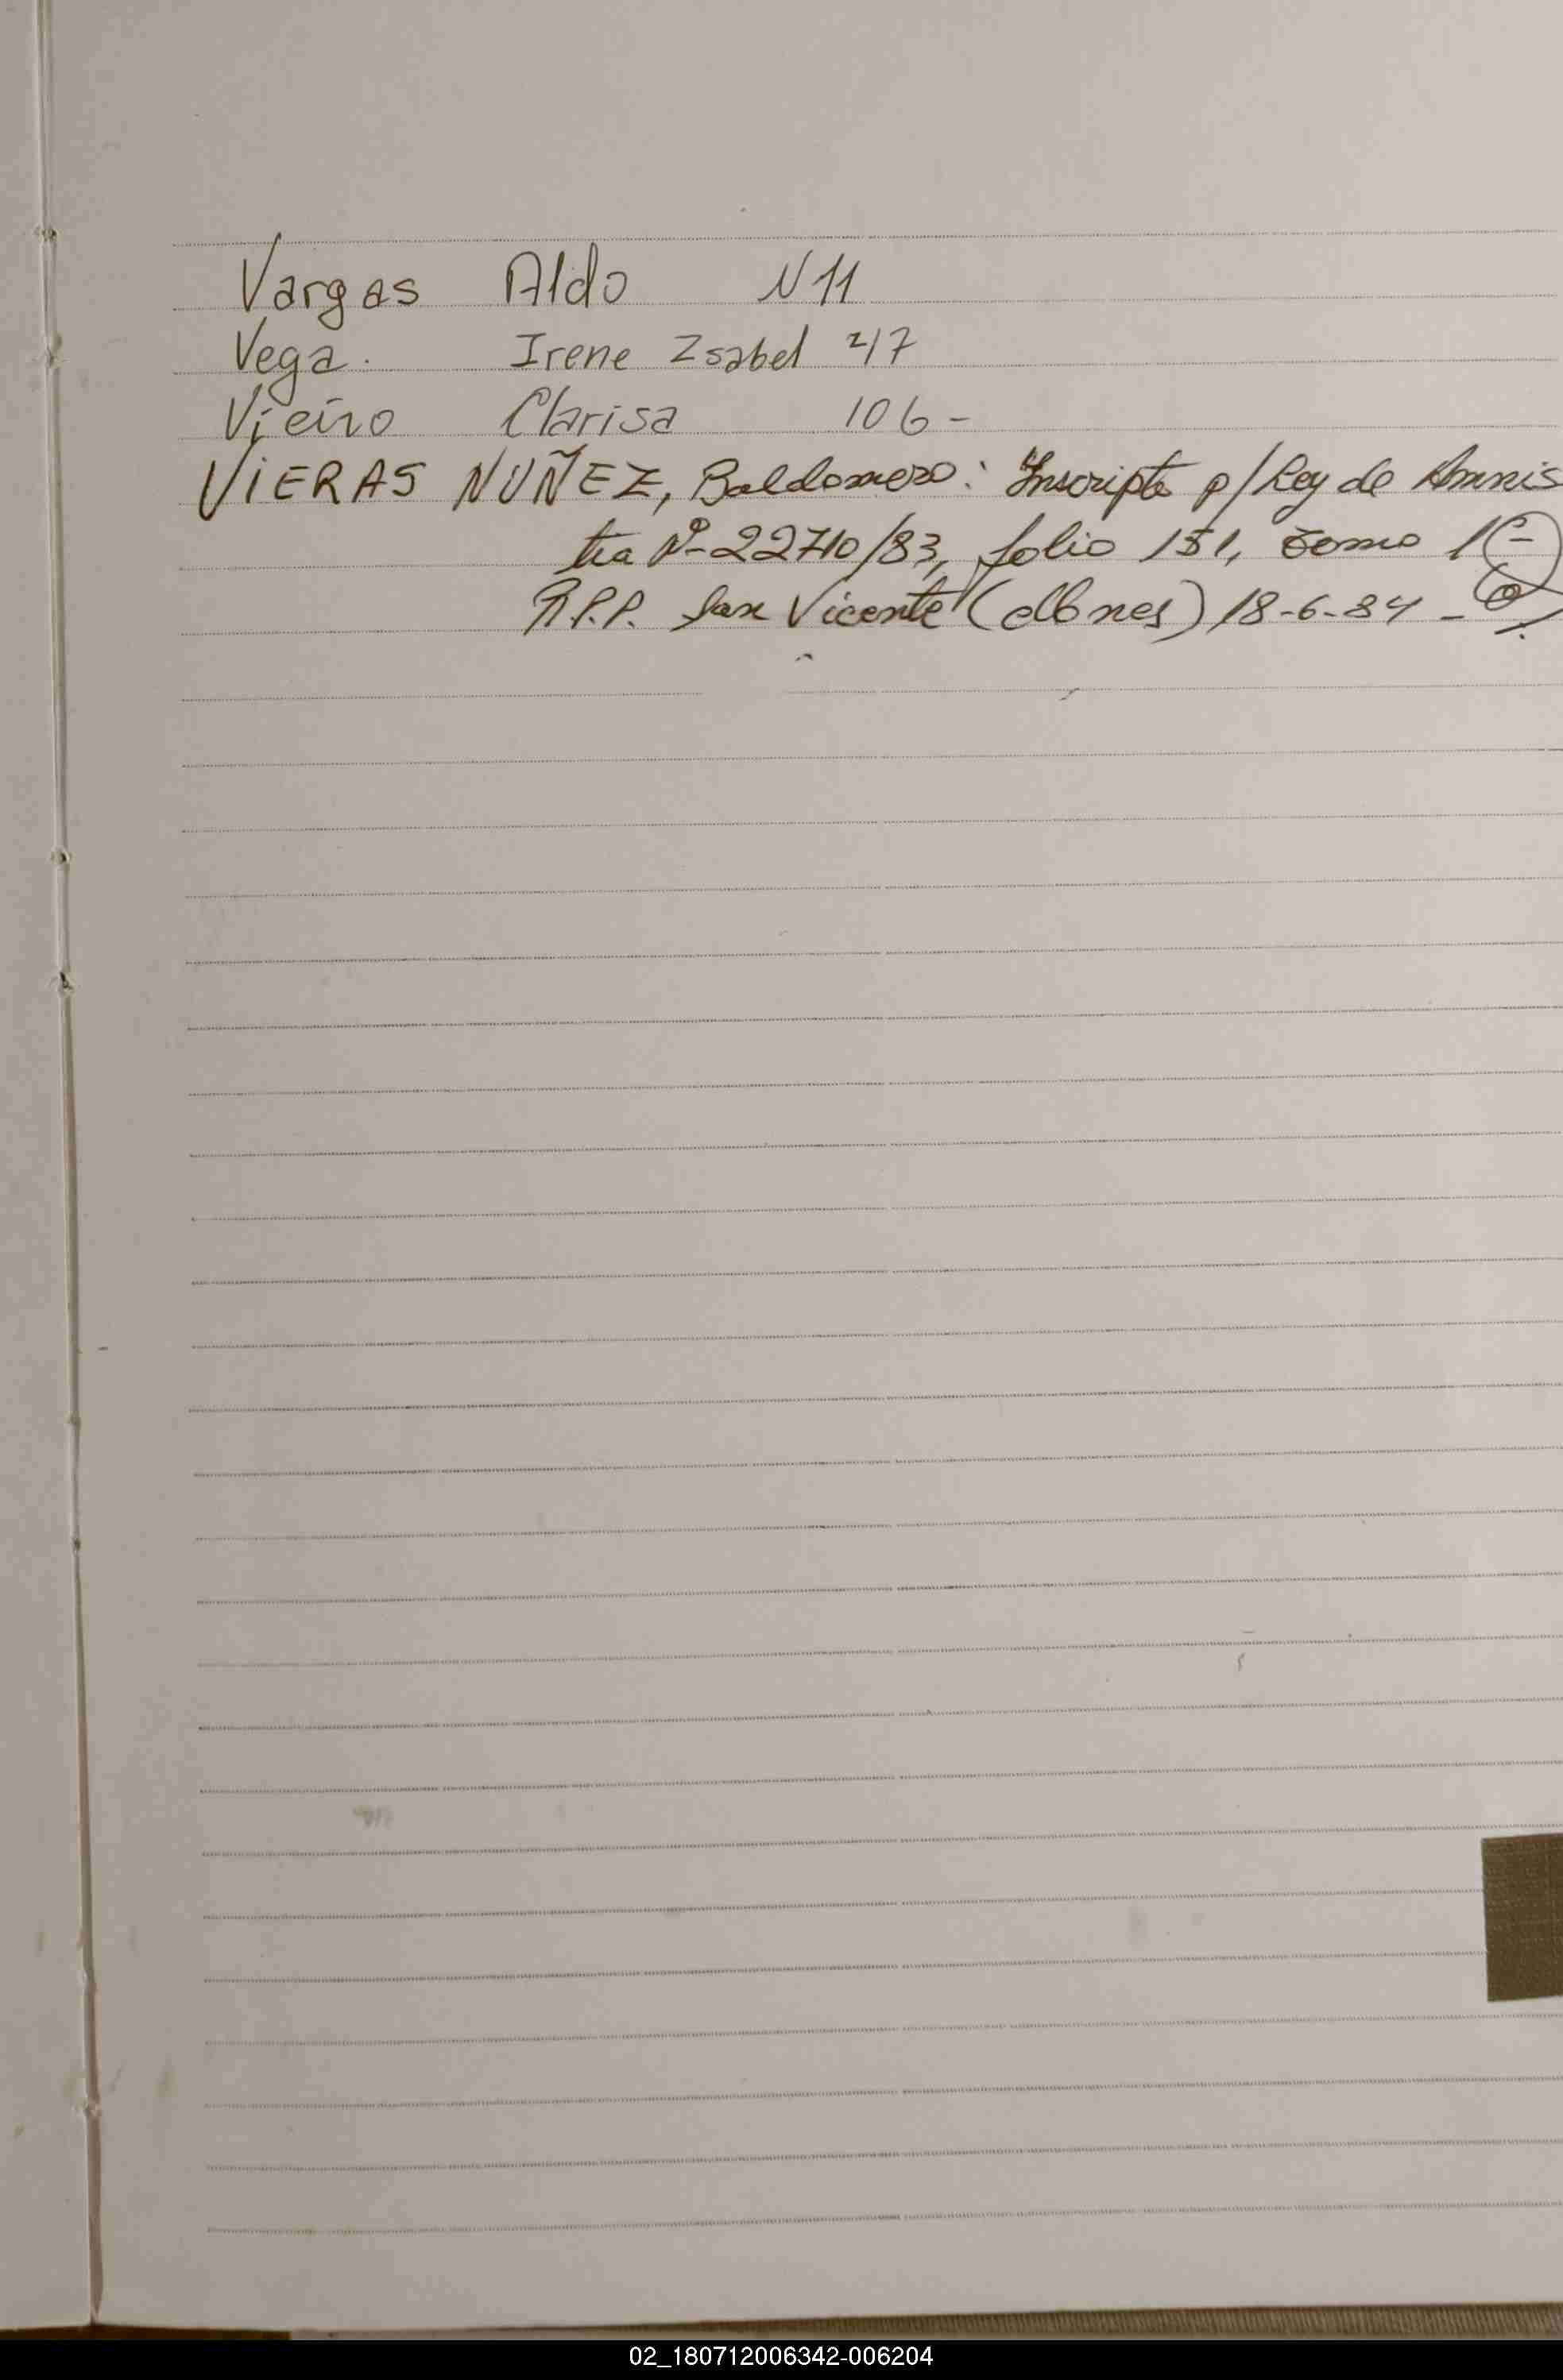 Vargas Aldo N 11
Vega. Irene Isabel 217
Vieiro Clarisa 106-
VIERAS NUÑEZ, Baldomero: Inscripto p/Ley de Amnis
tia Nº-22710/83, folio 151, tomo 1º-
R.P.P. San Vicente (Mnes) 18-6-84 -
02_180712006342-006204